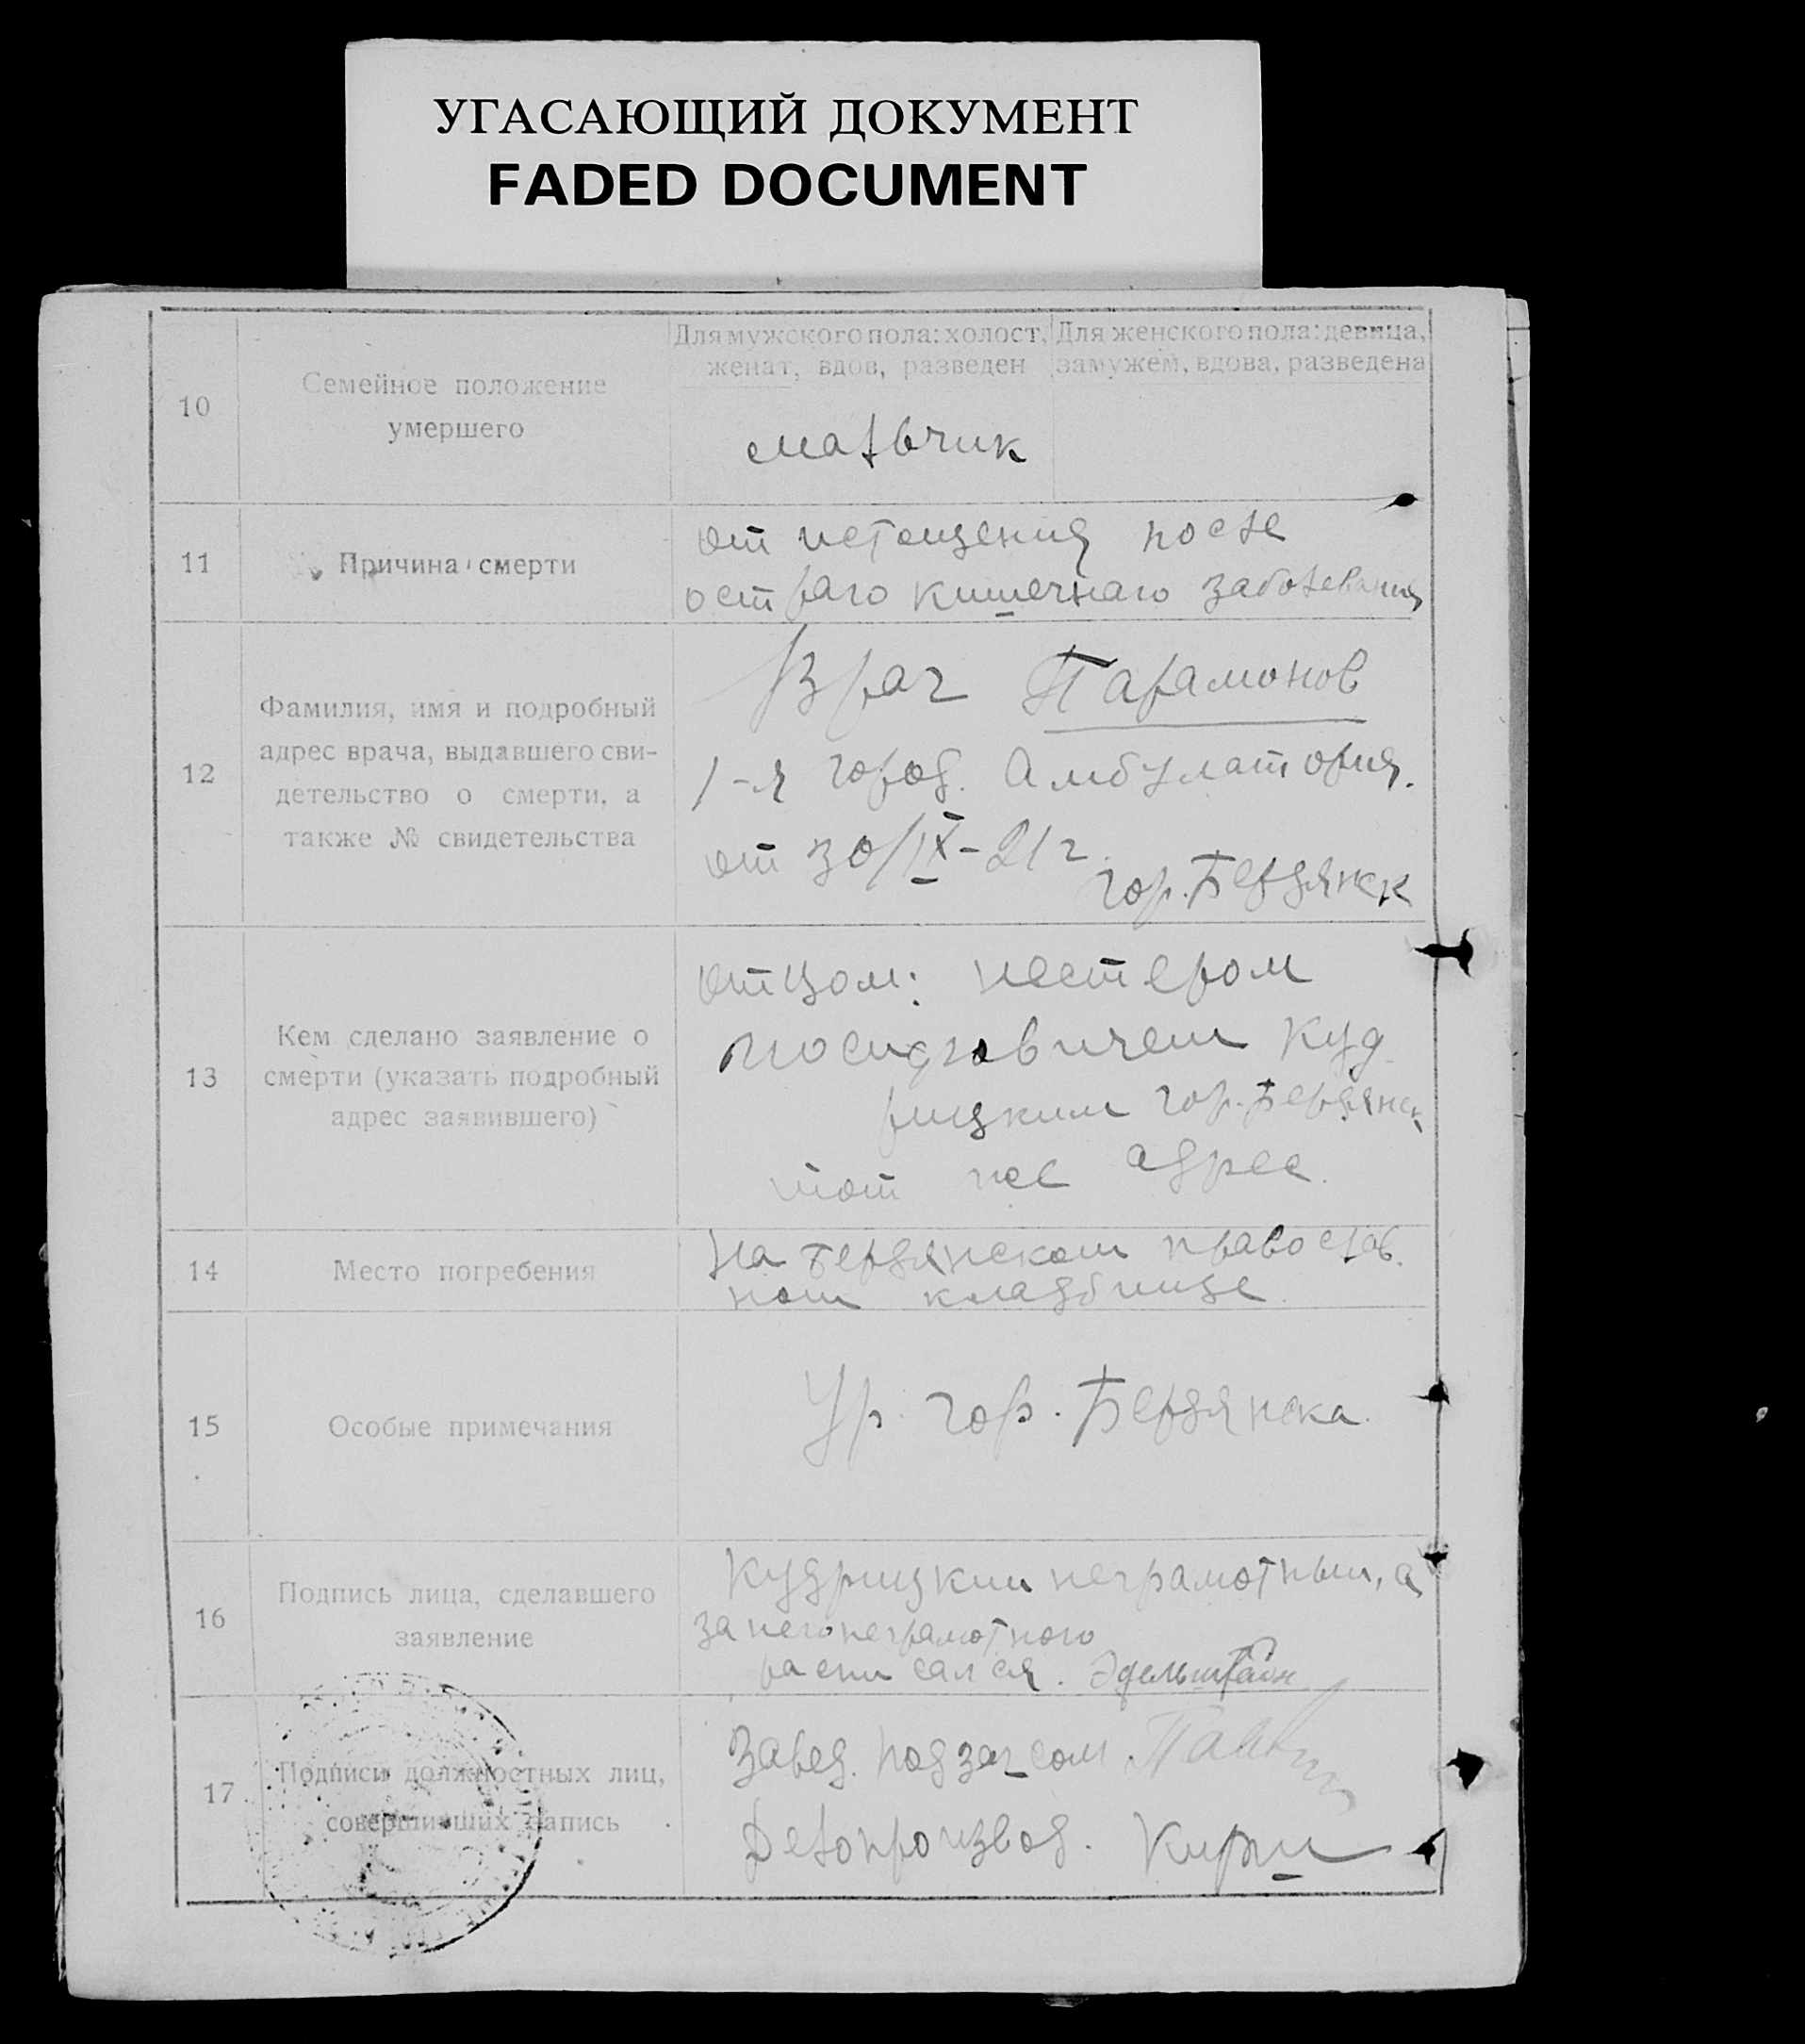 УГАСАЮЩИЙ ДОКУМЕНТ
FADED DOCUMENT
10
Семейное положение
умершего
Для мужского пола: холост,
женат, вдов, разведен
Для женского пола: девица,
замужем, вдова, разведена
мальчик
11
Причина смерти
от истощения после
остраго кишечнаго заболевания
12
Фамилия, имя и подробный
адрес врача, выдавшего сви-
детельство о смерти, а
также № свидетельства
Врач Парамонов
1-я город. Амбулатория.
от 30/IX-21 г.
гор. Бердянск
13
Кем сделано заявление о
смерти (указать подробный
адрес заявившего)
отцом: Нестером
Куд
рицким гор. Бердянск
тот же адрес.
14
Место погребения
На Бердянском православ.
ном кладбище.
15
Особые примечания
Ур. гор. Бердянска.
16
Подпись лица, сделавшего
заявление
Кудрицкий неграмотный, а
за него неграмотного
расписался. Эдельштейн
17
Подписи должностных лиц,
совершивших запись
Завед. подзагсом
Делопроизвод.